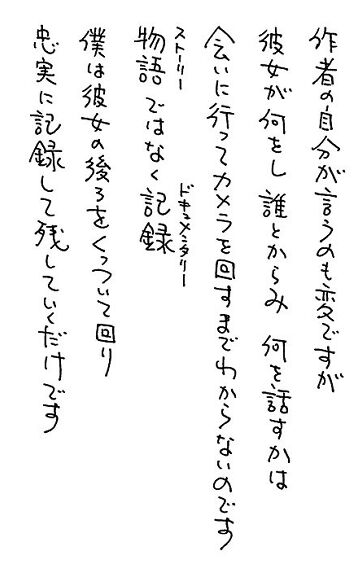 作者の自分が言うのも変ですが
彼女が何をし 誰とからみ 何を話すかは
会いに行ってカメラを回すまでわからないのです
ストーリー ドキュメンタリー
物語ではなく記録
僕は彼女の後ろをくっついて回り
忠実に記録して残していくだけです